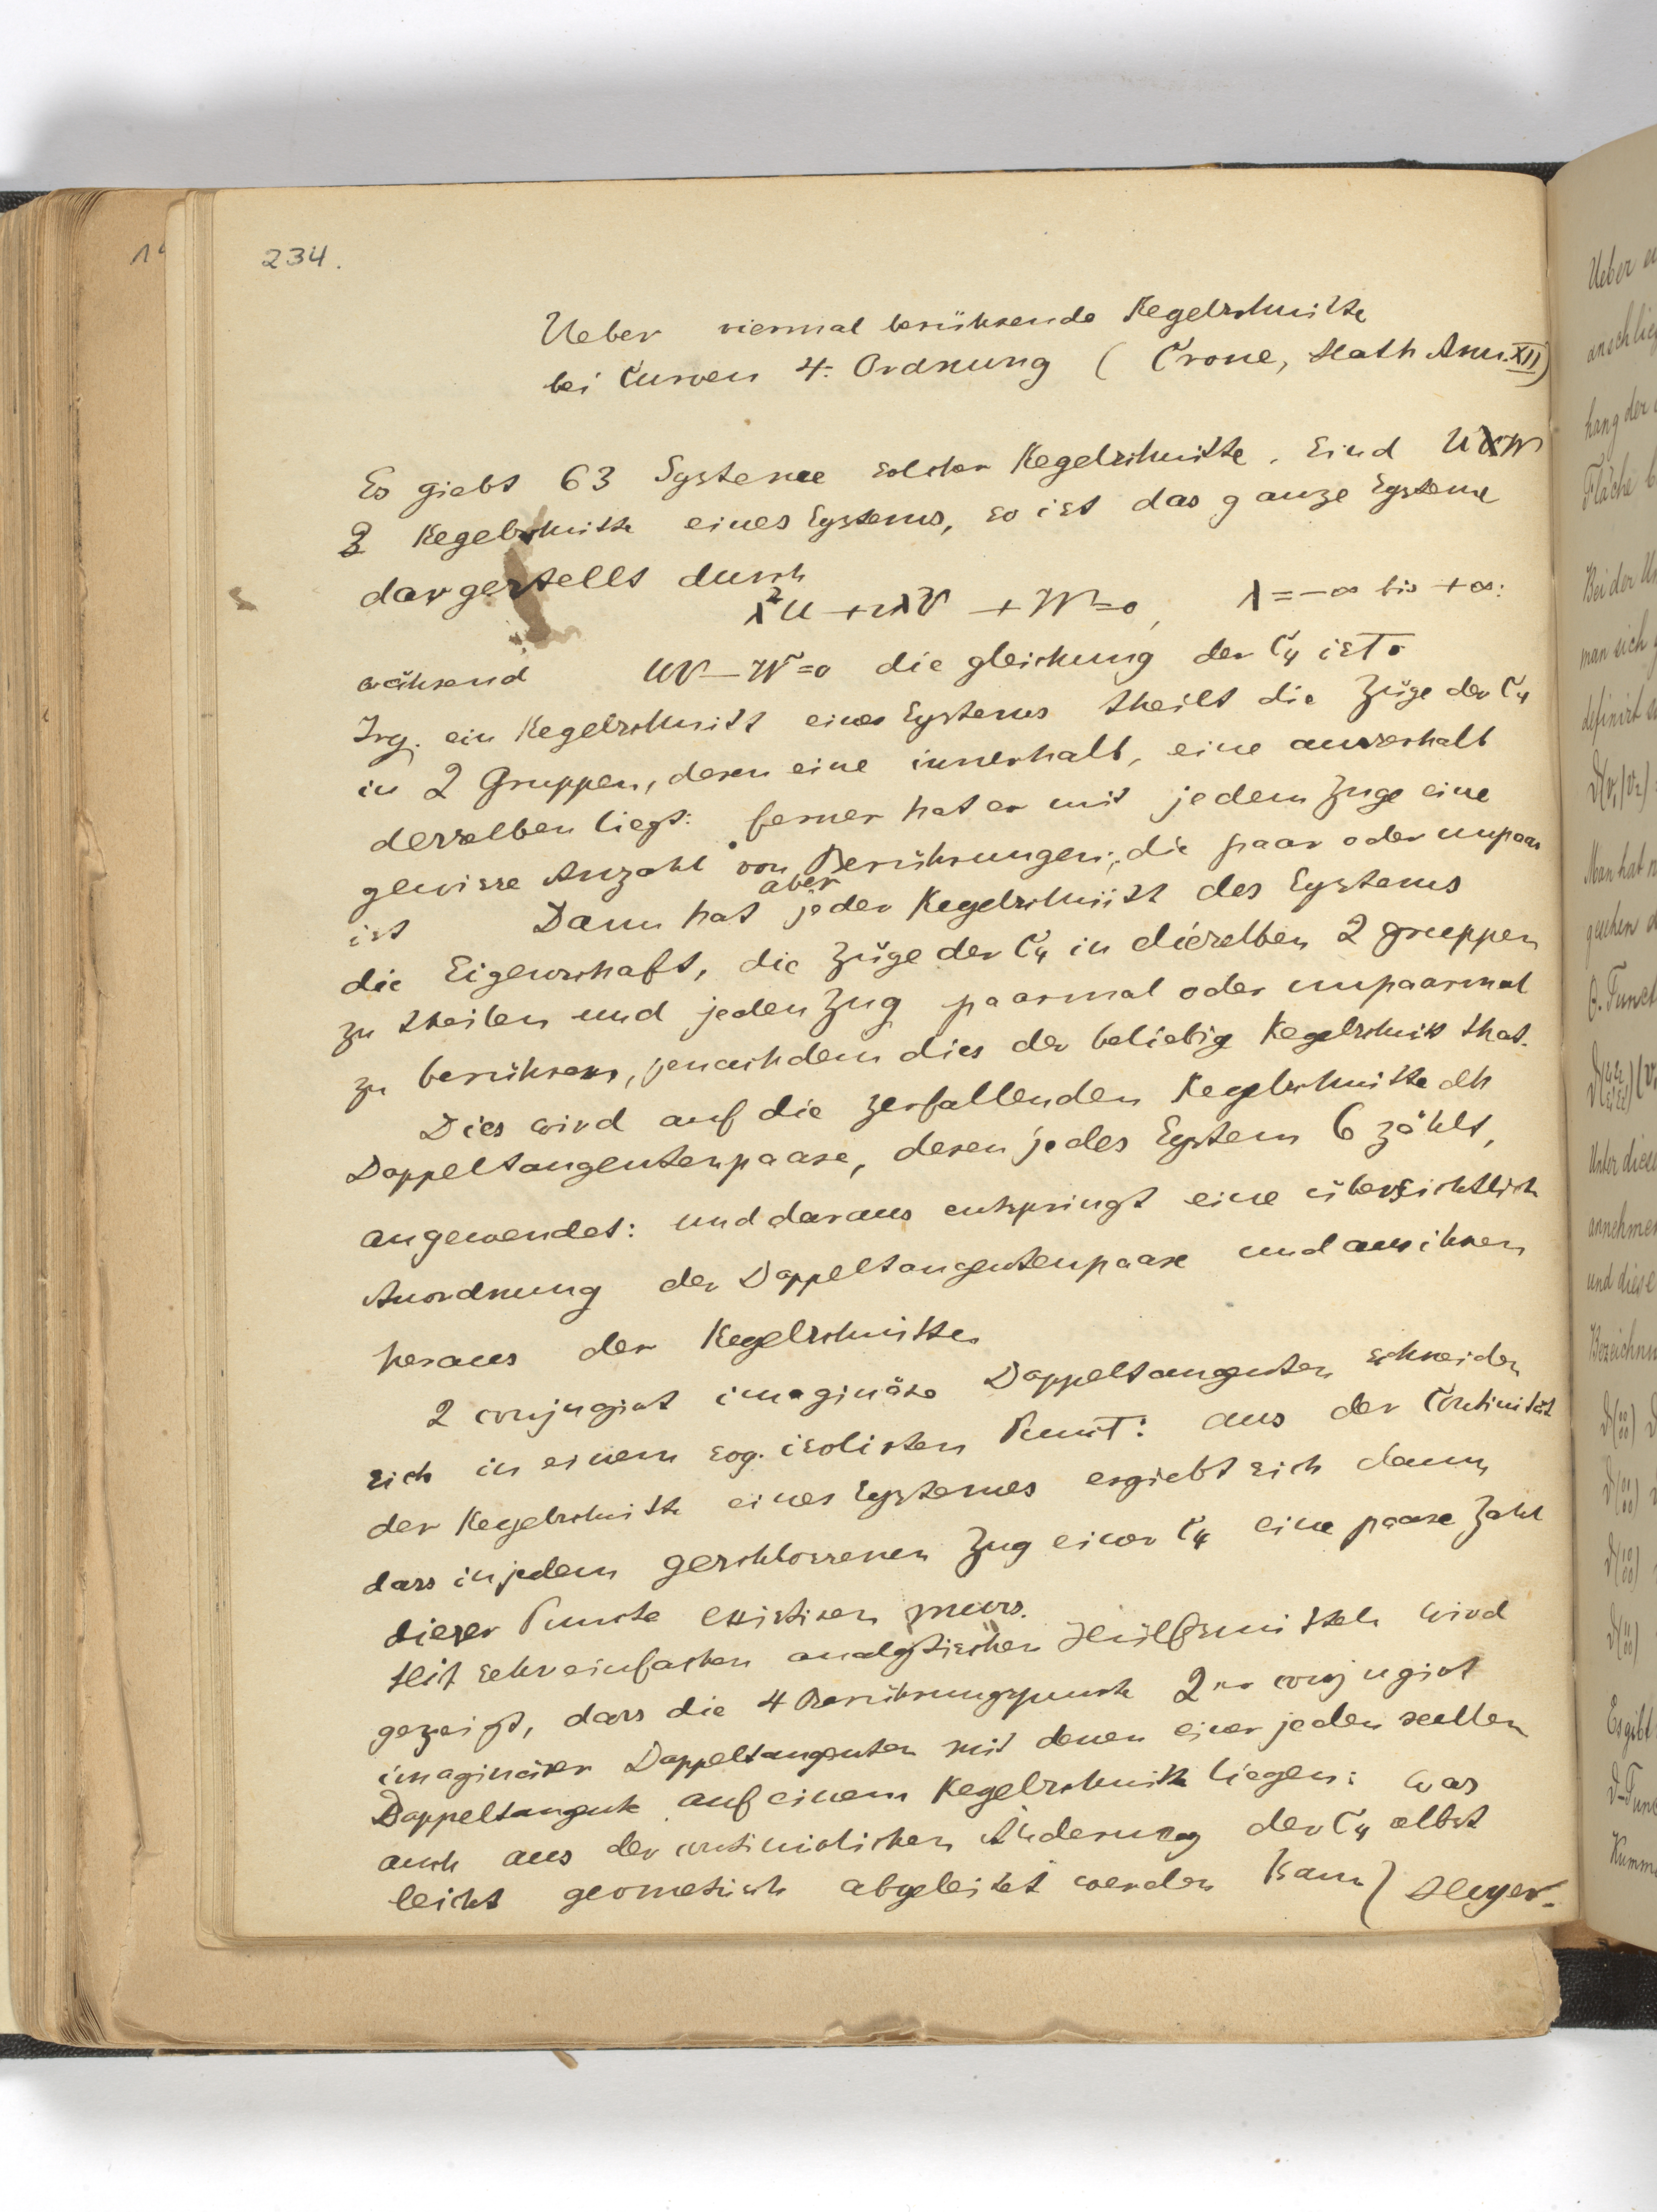 234.
Ueber viermal berührende Kegelschnitte
bei Curven 4. Ordnung ( Crone, Math Ann. XII)
Es giebt 63 Systeme solcher Kegelschnitte. Sind U W
2 Kegelschnitte eines Systems, so ist das ganze System
dargestellt durch
λ²U + 2λV + W = 0, λ = -∞ bis +∞:
während UV - W² = 0 die gleichung der C₄ ist.
Irg. ein Kegelschnitt eines Systems theilt die Züge der C₄
in 2 Gruppen, deren eine innerhalb, eine ausserhalb
desselben liegt: ferner hat er mit jedem Zuge eine
gewisse Anzahl von Berührungen, die paar oder unpaar
ist Dann hat aber jeder Kegelschnitt des Systems
die Eigenschaft, die Züge der C₄ in dieselben 2 gruppen
zu theilen und jeden Zug paarmal oder unpaarmal
zu berühren, jenachdem dies der beliebig Kegelschnitt that.
Dies wird auf die zerfallenden Kegelschnitte dh
Doppeltangentenpaare, deren jedes System 6 zählt,
angewendet: und daraus entspringt eine übersichtlich
Anordnung der Doppeltangentenpaare und aus ihnen
heraus der Kegelschnitte
2 conjugirt imaginäre Doppeltangenten schneiden
sich in einem sog. isolirten Punct: aus der Continuität
der Kegelschnitte eines Systemes ergiebt sich dann,
dass in jedem geschlossenen Zug einer C₄ eine paare Zahl
dieser Puncte existiren muss.
Mit sehr einfachen analytischen Hülfsmitteln wird
gezeigt, dass die 4 Berührungspuncte 2er conjugirt
imaginärer Doppeltangenten mit denen einer jeden reellen
Doppeltangente auf einem Kegelschnitte liegen: was
auch aus der continuirlichen Änderung der C₄ elbst
leicht geometrisch abgeleitet werden kann) Meyer.
Ueber
hang der
Fläche
Bei der
man sich
definirt
Man hat
gesehen
annehmen
und diese
Es gibt